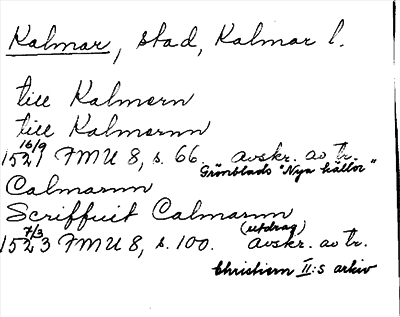 Kalmar, stad, Kalmar l.
till Kalmern
till Kalmarnn
16/9
1521 FMU 8, s. 66. avskr. av tr.
Grönblads "Nya källor"
Calmarnn
Scriffuit Calmarnn
7/3 (utdrag)
1523 FMU 8, s. 100. avskr. av tr.
Christiern II:s arkiv